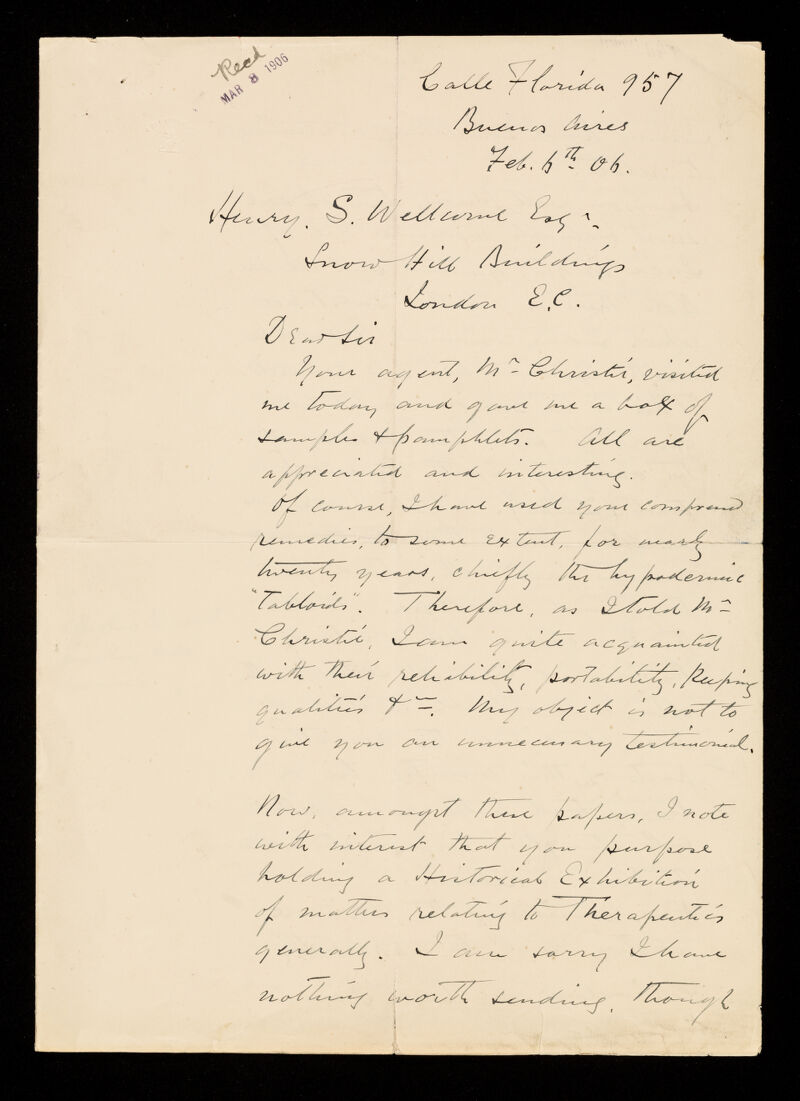 Recd
MAR 8 1906
Calle Florida 957
Buenos Aires
Feb. 6th 06.
Henry. S. Wellcome Esqr.
Snow Hill Buildings
London E.C.
Dear Sir
Your agent, Mr Christie, visited
me today and gave me a box of
samples & pamphlets. All are
appreciated and interesting.
Of course, I have used your compressed
remedies, to some extent, for nearly
twenty years, chiefly the hypodermic
"Tabloids". Therefore, as I told Mr
Christie, I am quite acquainted
with their reliability, portability, keeping
qualities &c. My object is not to
give you an unnecessary testimonial.
Now, amongst these papers, I note
with interest that you purpose
holding a Historical Exhibition
of matters relating to Therapeutics
generally. I am sorry I have
nothing worth sending, though